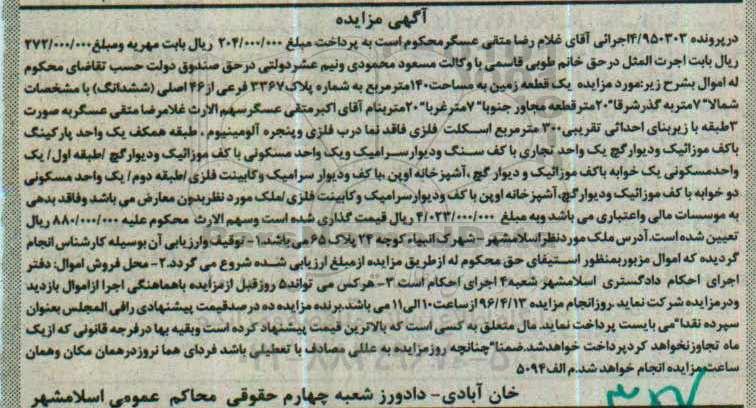 آگهی مزایده
درپرونده ۴/۹۵۰۳۰۳اجرائی آقای غلام رضا متقی عسگرمحکوم است به پرداخت مبلغ ۲۰۴/۰۰۰/۰۰۰ ریال بابت مهریه ومبلغ۲۷۲/۰۰۰/۰۰۰
ریال بابت اجرت المثل درحق خانم طوبی قاسمی با وکالت مسعود محمودی ونیم عشردولتی درحق صندوق دولت حسب تقاضای محکوم
له اموال بشرح زیر:مورد مزایده یک قطعه زمین به مساحت۱۴۰مترمربع به شماره پلاک۳۳۶۷ فرعی از۴۶ اصلی (ششدانگ) با مشخصات
شمالا"۷متربه گذرشرقا"۲۰مترقطعه مجاور جنوبا"۷مترغربا"۲۰متربنام آقای اکبرمتقی عسگرسهم الارث غلامرضا متقی عسگربه صورت
۳طبقه با زیربنای احداثی تقریبی۳۰۰ مترمربع اسکلت فلزی فاقد نما درب فلزی وپنجره آلومینیوم ، طبقه همکف یک واحد پارکینگ
باکف موزائیک ودیوارگچ یک واحد تجاری با کف سنگ ودیوارسرامیک ویک واحد مسکونی با کف موزائیک ودیوارگچ /طبقه اول/ یک
واحدمسکونی یک خوابه باکف موزائیک و دیوار گچ ،آشپزخانه اوپن ،با کف ودیوار سرامیک وکابینت فلزی/طبقه دوم/ یک واحد مسکونی
دو خوابه با کف موزائیک ودیوارگچ، آشپزخانه اوپن با کف ودیوارسرامیک وکابینت فلزی/ملک مورد نظربدون معارض می باشد وفاقد بدهی
به موسسات مالی واعتباری می باشد وبه مبلغ ۴/۰۲۳/۰۰۰/۰۰۰ ریال قیمت گذاری شده است وسهم الارث محکوم علیه ۸۸۰/۰۰۰/۰۰۰ ریال
تعیین شده است. آدرس ملک موردنظراسلامشهر - شهرک انبیاء کوچه ۲۴ پلاک ۶۵ می باشد.۱-توقیف وارزیابی آن بوسیله کارشناس انجام
گردیده که اموال مزبوربمنظور استیفای حق محکوم له ازطریق مزایده ازمبلغ ارزیابی شده شروع می گردد.۲- محل فروش اموال: دفتر
اجرای احکام دادگستری اسلامشهر شعبه۴ اجرای احکام است.۳-هرکس می تواند۵ روزقبل ازمزایده باهماهنگی اجرا ازاموال بازدید
ودرمزایده شرکت نماید .روزانجام مزایده ۹۶/۴/۱۳ ازساعت۱۰الی۱۱ می باشد.برنده مزایده ده درصدقیمت پیشنهادی رافی المجلس بعنوان
سپرده نقدا"می بایست پرداخت نماید. مال متعلق به کسی است که بالاترین قیمت پیشنهاد کرده است وبقیه بها درفرجه قانونی که ازیک
ماه تجاوزنخواهد کردپرداخت خواهدشد.ضمنا"چنانچه روزمزایده به عللی مصادف با تعطیلی باشد فردای هما نروزدرهمان مکان وهمان
ساعت مزایده انجام خواهد شد.م الف۵۰۹۴
خان آبادی- دادورز شعبه چهارم حقوقی محاکم عمومی اسلامشهر